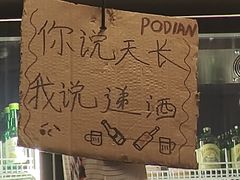 PODIAN
你说天长
我说递酒